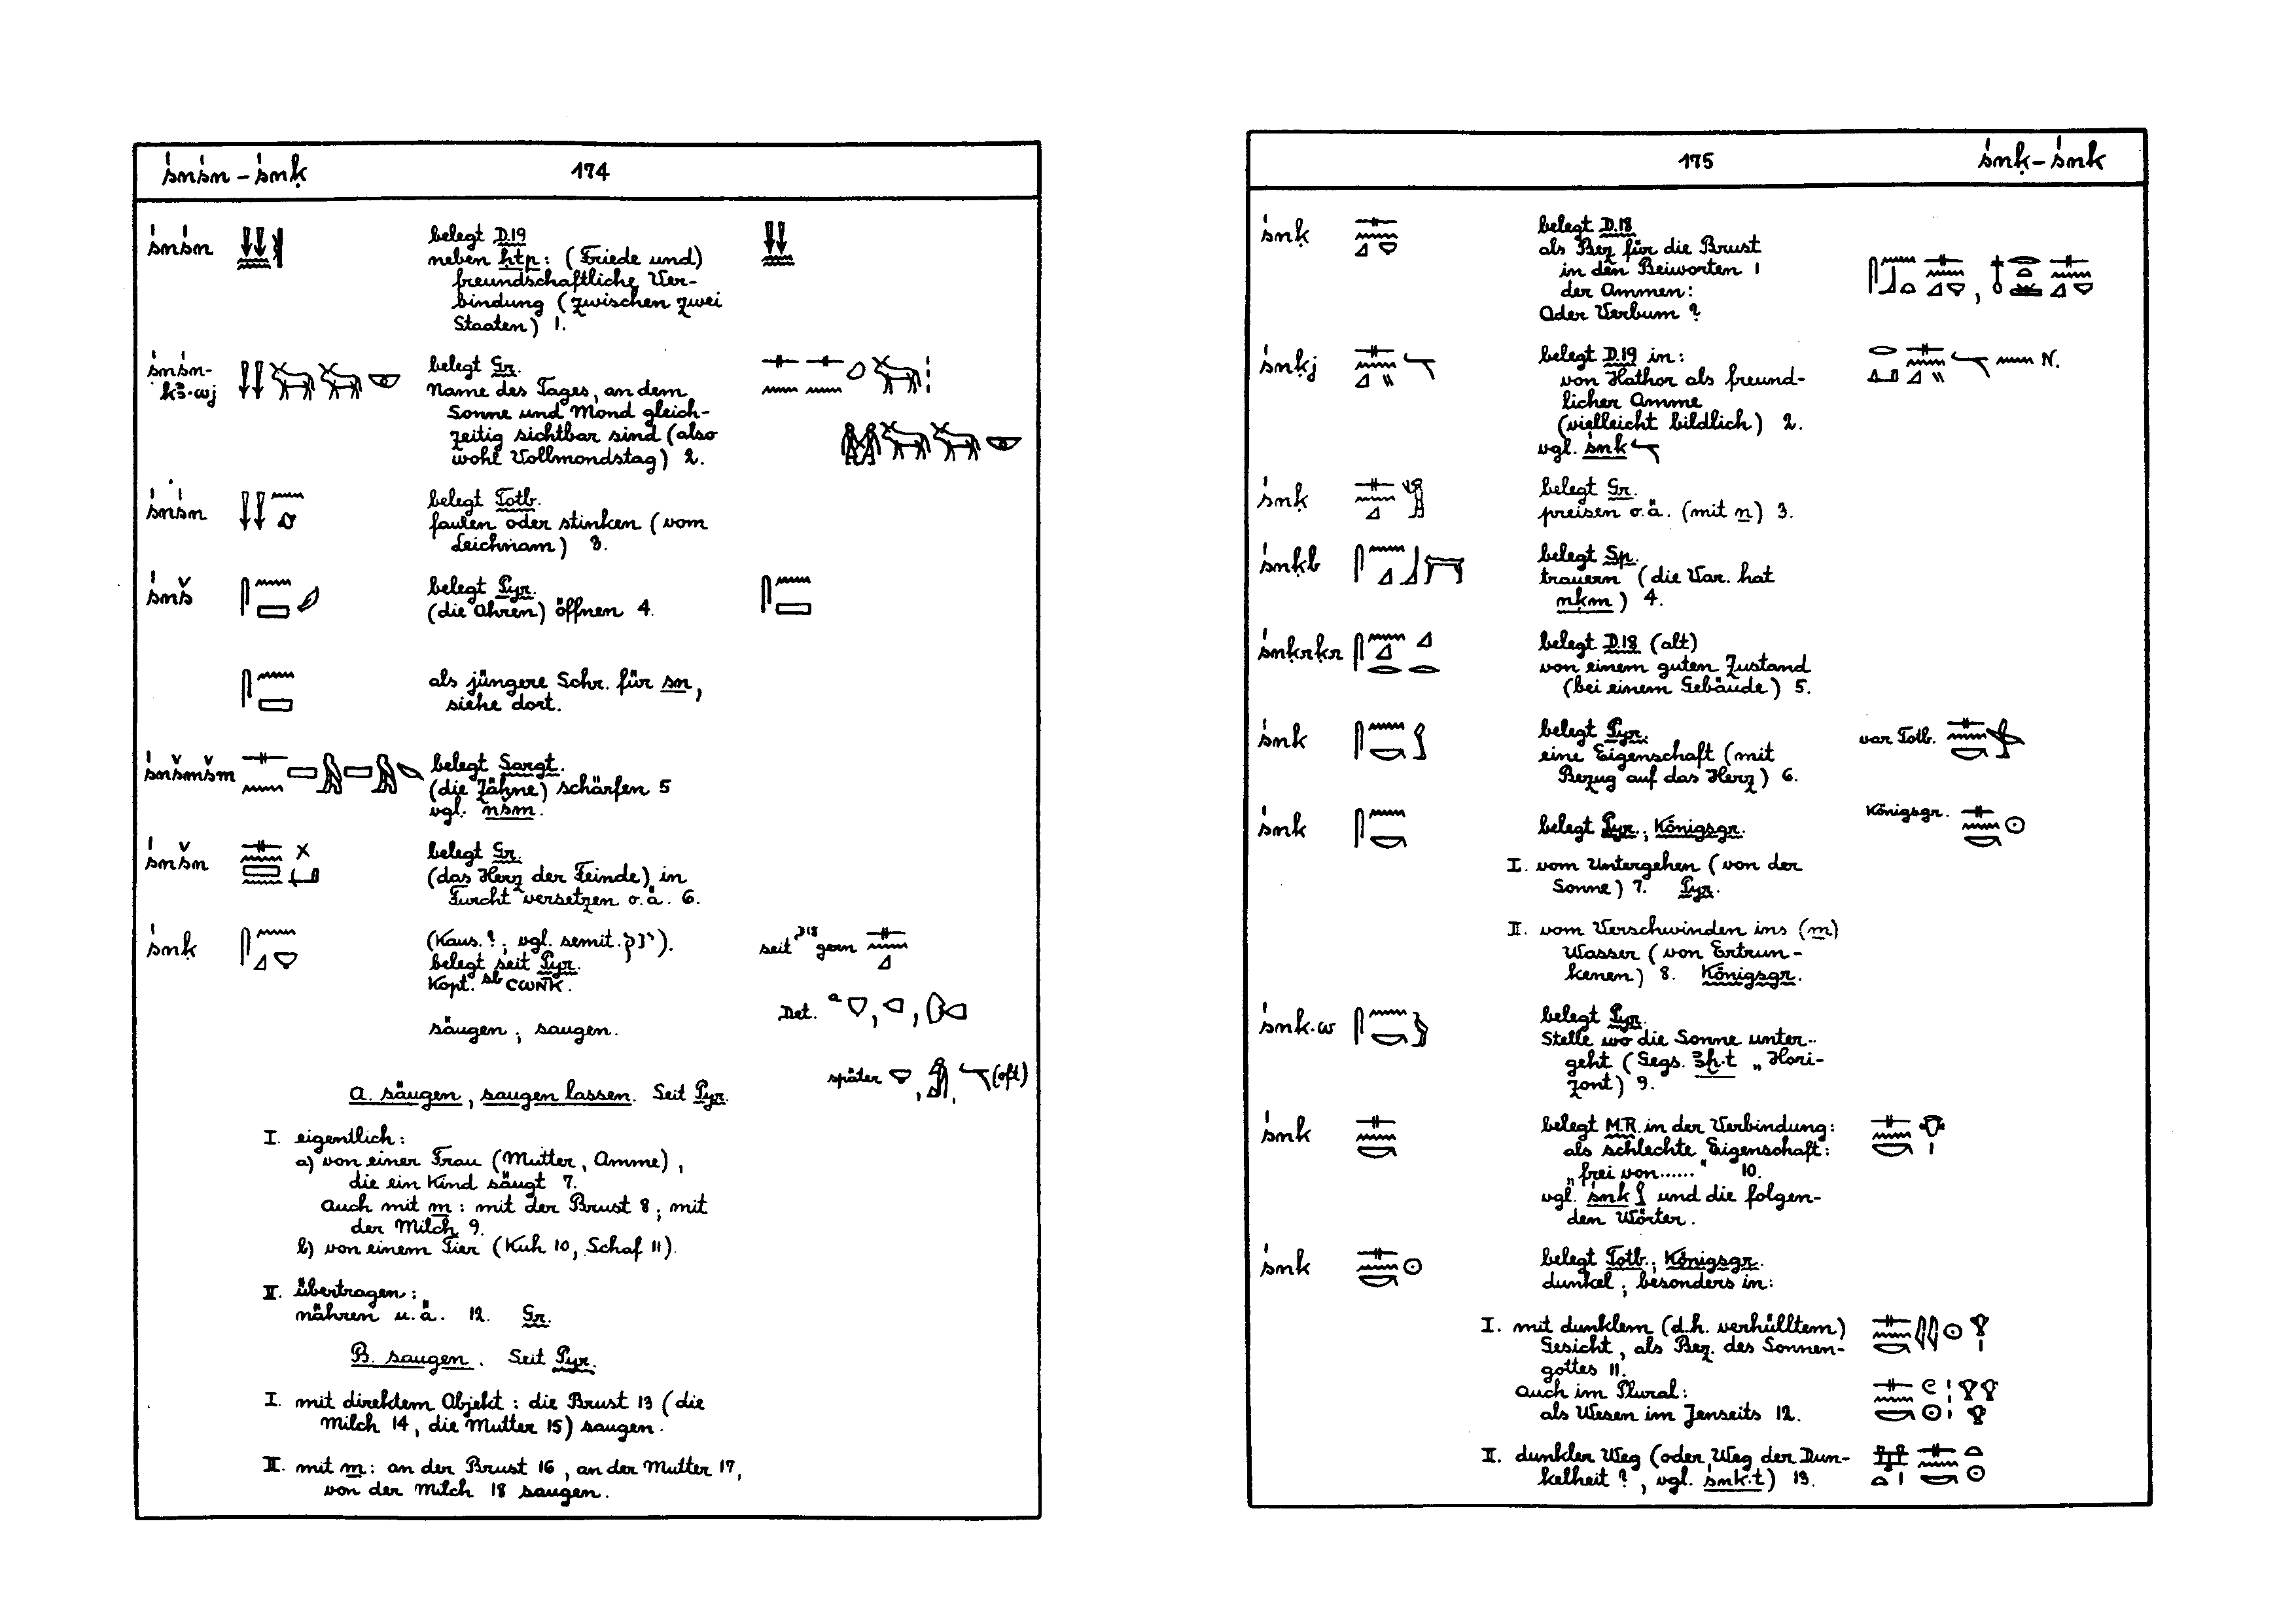 śnśn – śnḳ
174
śnśn
belegt D.19
neben ḥtp: (Friede und)
freundschaftliche Ver-
bindung (zwischen zwei
Staaten) 1.
śnśn-
kꜣ·wj
belegt Gr.
Name des Tages, an dem
Sonne und Mond gleich-
zeitig sichtbar sind (also
wohl Vollmondstag) 2.
śnśn
belegt Totb.
faulen oder stinken (vom
Leichnam) 3.
śnš
belegt Pyr.
(die Ohren) öffnen 4.
als jüngere Schr. für sn,
siehe dort.
śnšmšm
belegt Sargt.
(die Zähne) schärfen 5
vgl. nšm.
śnšn
belegt Gr.
(das Herz der Feinde) in
Furcht versetzen o.ä. 6.
śnḳ
(Kaus.?; vgl. semit. ינק).
belegt seit Pyr.
Kopt. sb ⲥⲱⲛⲕ.
seit D18 gern
säugen; saugen.
Det. a
später , , (oft)
A. säugen, saugen lassen. Seit Pyr.
I. eigentlich:
a) von einer Frau (Mutter, Amme),
die ein Kind säugt 7.
Auch mit m: mit der Brust 8; mit
der Milch 9.
b) von einem Tier (Kuh 10, Schaf 11).
II. übertragen:
nähren u.ä. 12. Gr.
B. saugen. Seit Pyr.
I. mit direktem Objekt: die Brust 13 (die
Milch 14, die Mutter 15) saugen.
II. mit m: an der Brust 16, an der Mutter 17,
von der Milch 18 saugen.
175
śnḳ – śnk
śnḳ
belegt D.18
als Bez für die Brust
in den Beiworten 1
der Ammen:
Oder Verbum?
śnḳj
belegt D.19 in:
von Hathor als freund-
licher Amme
(vielleicht bildlich) 2.
vgl. śnk
N.
śnḳ
belegt Gr.
preisen o.ä. (mit n) 3.
śnḳb
belegt Sp.
trauern (die Var. hat
nḳm) 4.
śnḳrḳr
belegt D.18 (alt)
von einem guten Zustand
(bei einem Gebäude) 5.
śnk
belegt Pyr.
eine Eigenschaft (mit
Bezug auf das Herz) 6.
var Totb.
śnk
belegt Pyr.; Königsgr.
Königsgr.
I. vom Untergehen (von der
Sonne) 7. Pyr.
II. vom Verschwinden ins (m)
Wasser (von Ertrun-
kenen) 8. Königsgr.
śnk·w
belegt Pyr.
Stelle wo die Sonne unter-
geht (Gegs. ꜣḫ·t „Hori-
zont) 9.
śnk
belegt M.R. in der Verbindung:
als schlechte Eigenschaft:
„frei von......“ 10.
vgl. śnk und die folgen-
den Wörter.
śnk
belegt Totb.; Königsgr.
dunkel; besonders in:
I. mit dunklem (d.h. verhülltem)
Gesicht, als Bez. des Sonnen-
gottes 11.
Auch im Plural:
als Wesen im Jenseits 12.
II. dunkler Weg (oder Weg der Dun-
kelheit?, vgl. śnk·t) 13.